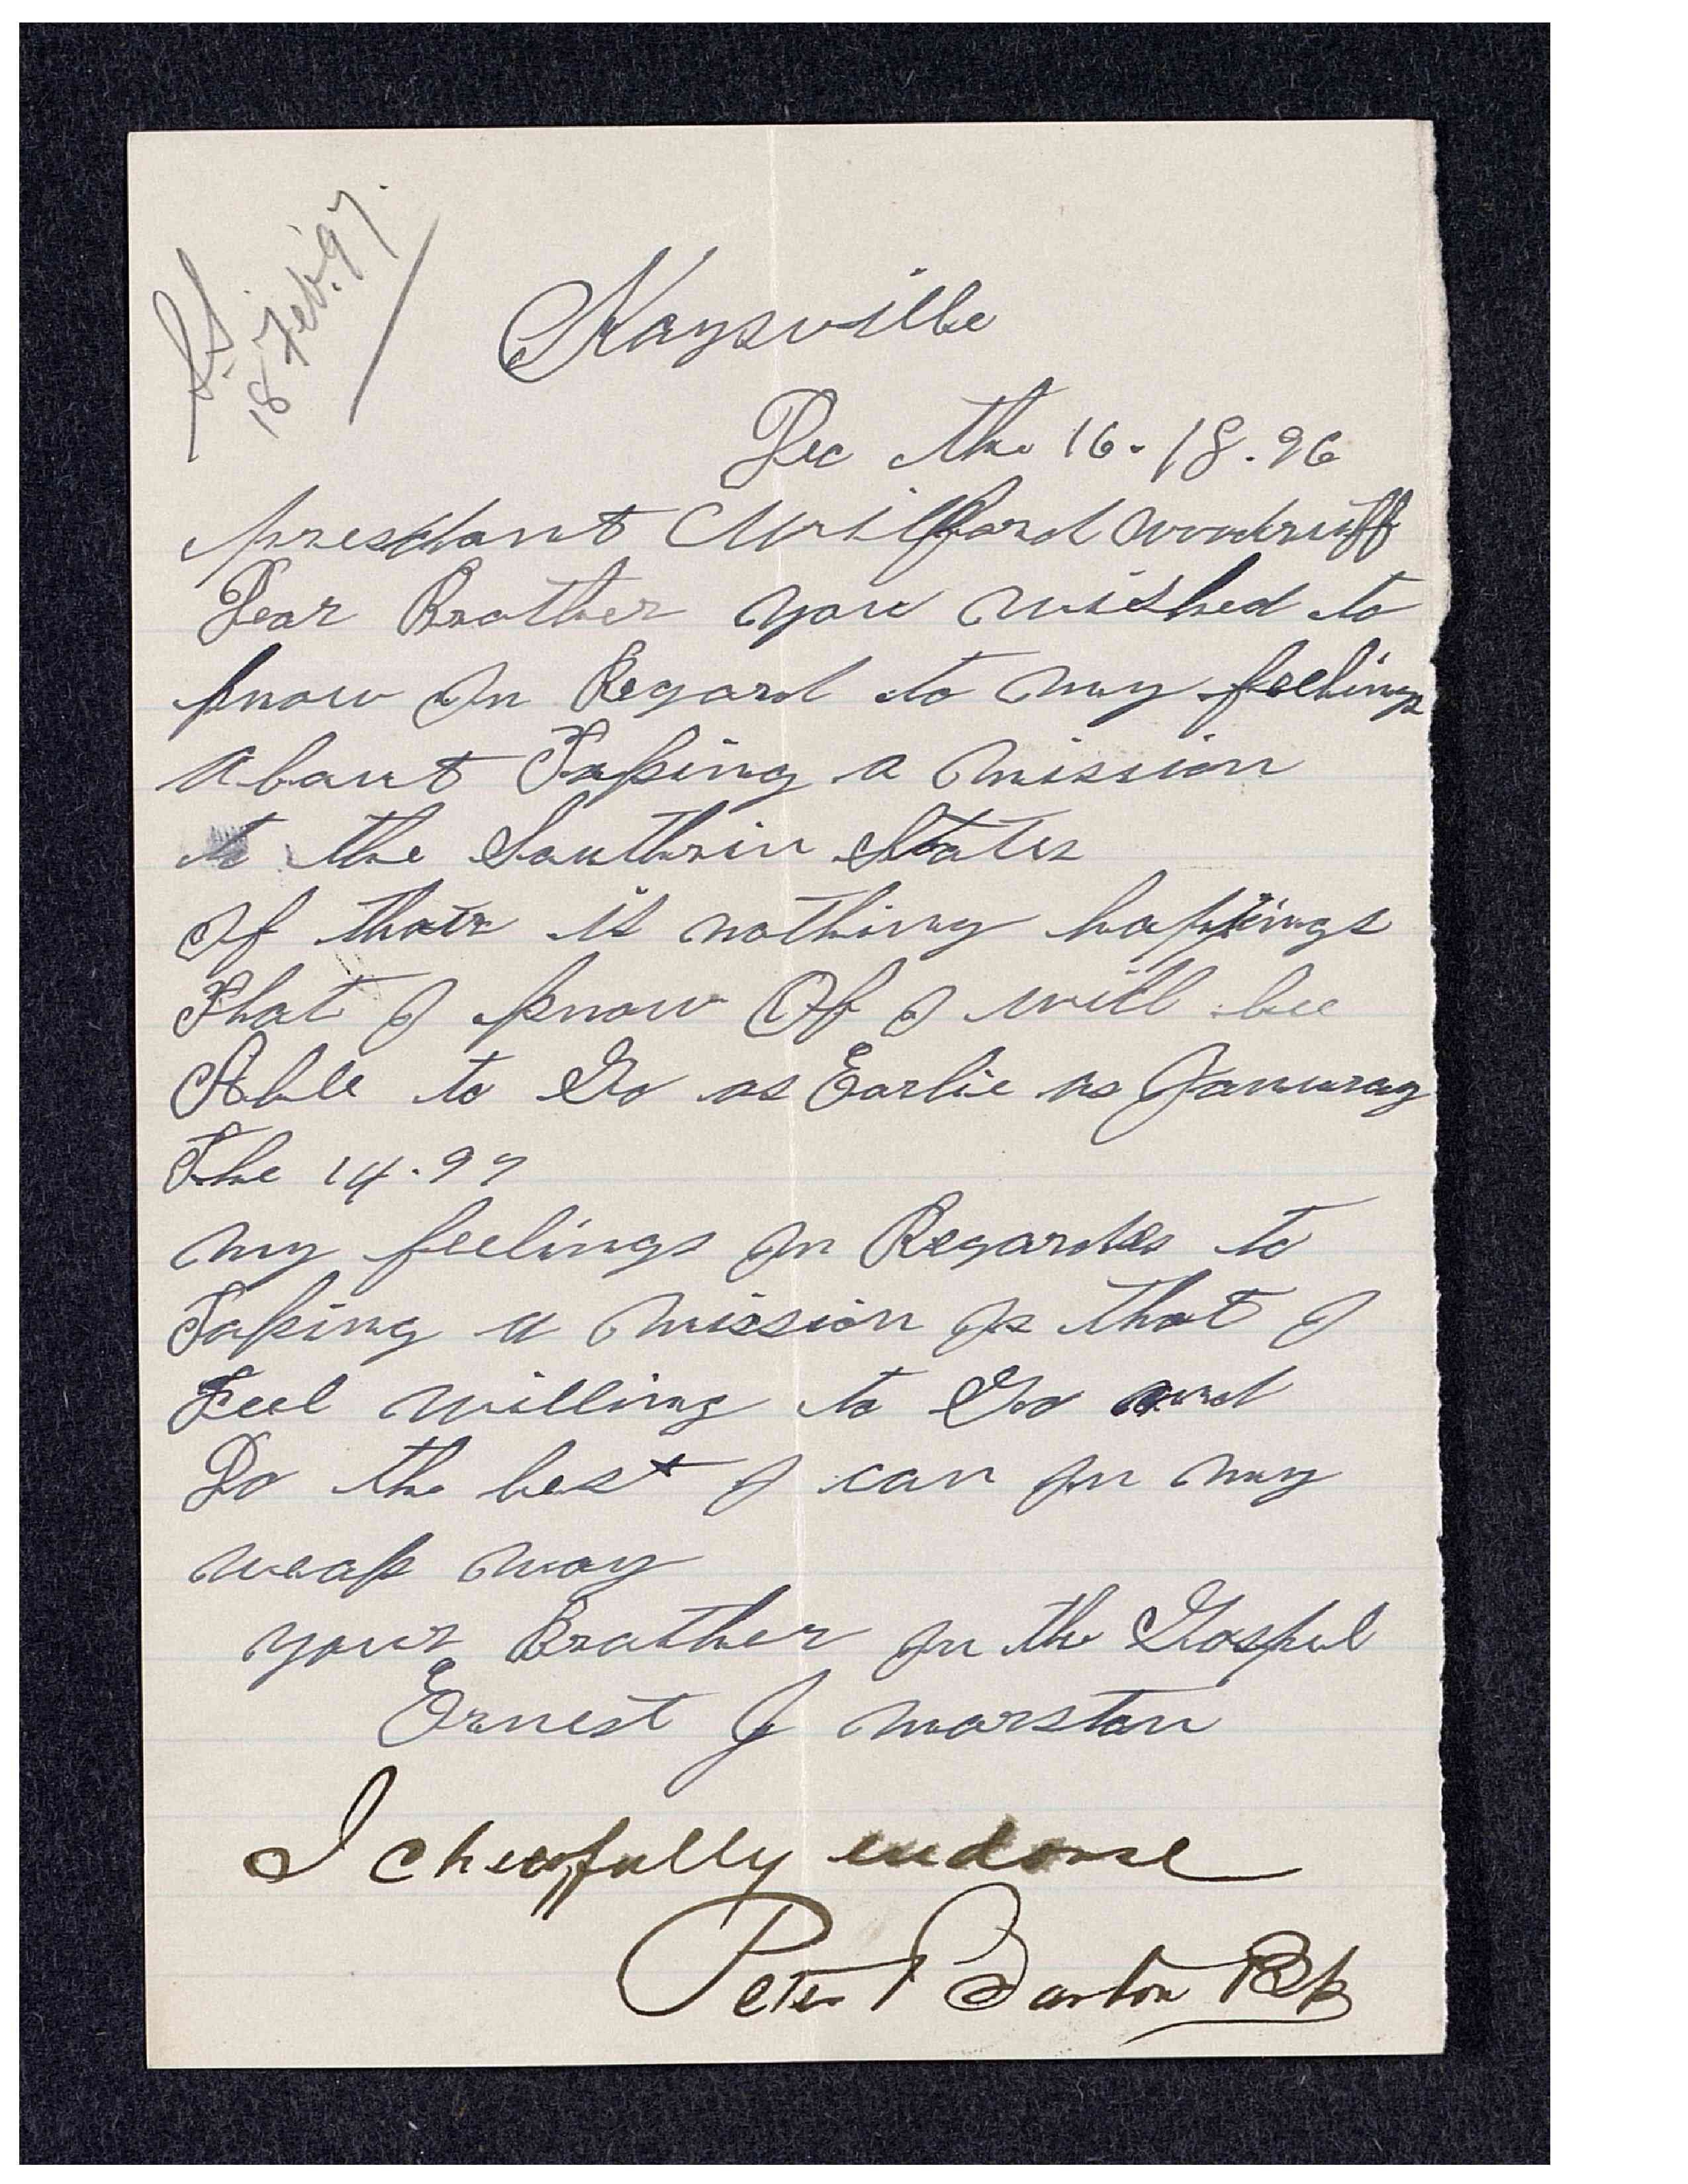 S.S
18 Feb. 97.
Kaysville
Dec the 16. 18. 96
presedant Wrilford woodruff
Dear Brother you wished to
know In Regard to my feelings
About Taking a mission
to the Southrin States
If thair is nothing happings
That I know Of I will bee
Able to Go as Earlie as Januray
The 14. 97
my feelings In Regardes to
Taking a mission Is that I
Feel willing to Go and
Do the best I can In my
weak way
your Brother In the Gospel
Ernest J marston
I cheerfully endorse
Peter Barton Bp